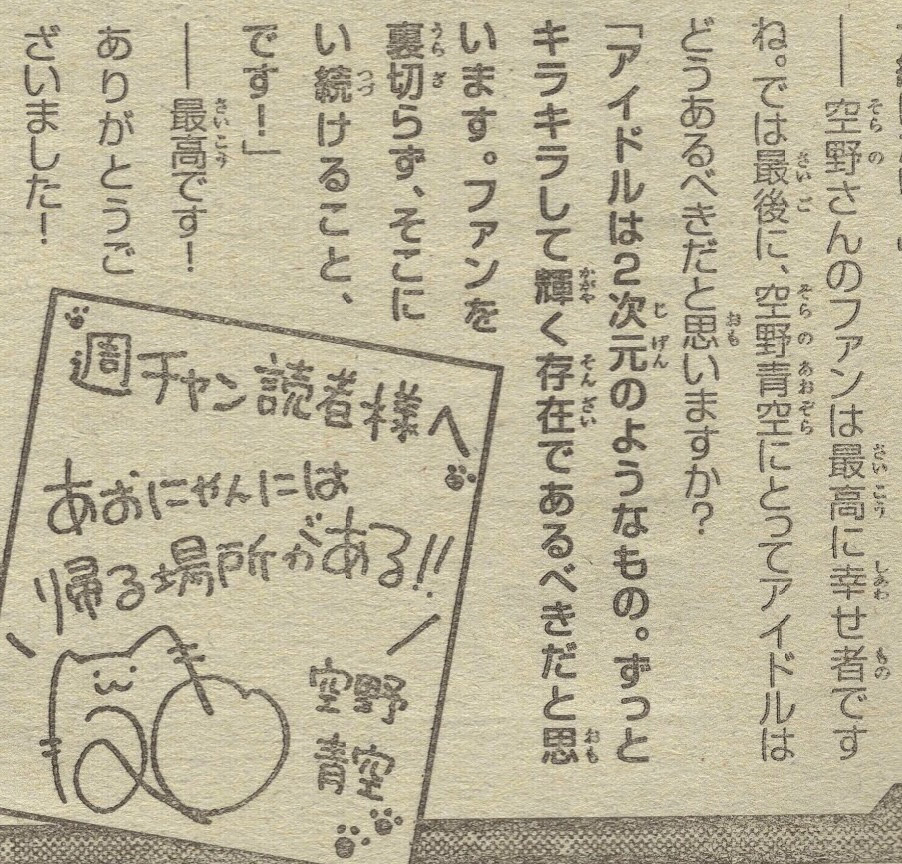 ――空野さんのファンは最高に幸せ者です
ね。では最後に、空野青空にとってアイドルは
どうあるべきだと思いますか?
「アイドルは2次元のようなもの。ずっと
キラキラして輝く存在であるべきだと思
います。ファンを
裏切らず、そこに
い続けること、
です!」
――最高です!
ありがとうご
ざいました!
週チャン読者様へ
あおにゃんには
帰る場所がある!!
空野
青空